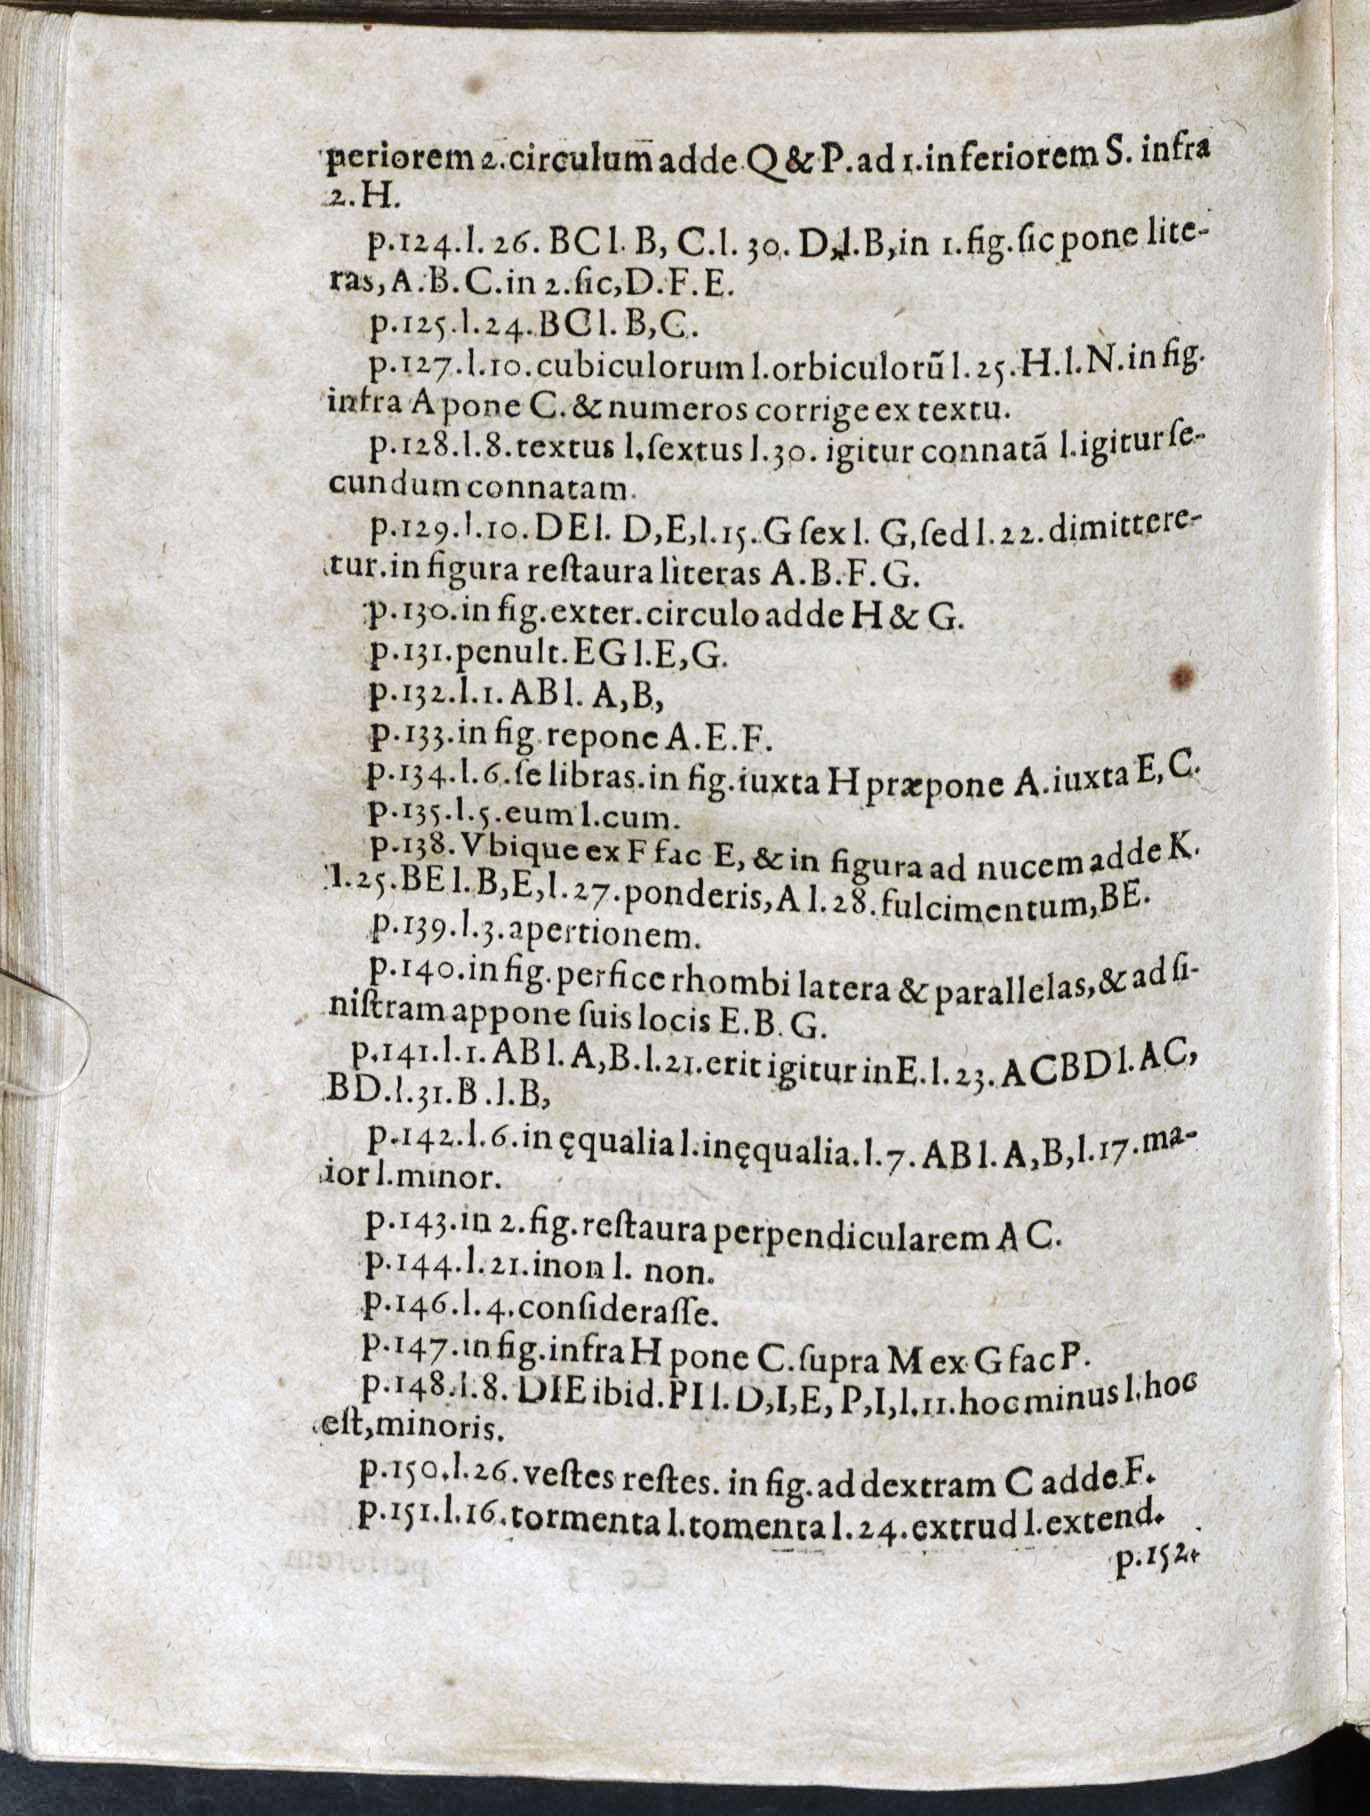 periorem 2. circulum adde Q & P. ad 1. inferiorem S. infra
2. H.
p. 124. l. 26. BC l. B, C. l. 30. D, l. B, in 1. fig. ſic pone lite-
ras, A. B. C. in 2. ſic, D. F. E.
p. 125. l. 24. BC l. B, C.
p. 127. l. 10. cubiculorum l. orbiculorũ l. 25. H. l. N. in fig.
infra A pone C. & numeros corrige ex textu.
p. 128. l. 8. textus l. ſextus l. 30. igitur connatã l. igitur ſe-
cundum connatam.
p. 129. l. 10. DE l. D, E, l. 15. G ſex l. G, ſed l. 22. dimittere-
tur. in figura reſtaura literas A. B. F. G.
p. 130. in fig. exter. circulo adde H & G.
p. 131. penult. EG l. E, G.
p. 132. l. 1. AB l. A, B,
p. 133. in fig. repone A. E. F.
p. 134. l. 6. ſe libras. in fig. iuxta H præpone A. iuxta E, C.
p. 135. l. 5. eum l. cum.
p. 138. Vbique ex F fac E, & in figura ad nucem adde K.
l. 25. BE l. B, E, l. 27. ponderis, A l. 28. fulcimentum, BE.
p. 139. l. 3. apertionem.
p. 140. in fig. perfice rhombi latera & parallelas, & ad ſi-
niſtram appone ſuis locis E. B. G.
p. 141. l. 1. AB l. A, B. l. 21. erit igitur in E. l. 23. ACBD l. AC,
BD. l. 31. B. l. B,
p. 142. l. 6. in ęqualia l. inęqualia. l. 7. AB l. A, B, l. 17. ma-
ior l. minor.
p. 143. in 2. fig. reſtaura perpendicularem A C.
p. 144. l. 21. inon l. non.
p. 146. l. 4. conſideraſſe.
p. 147. in fig. infra H pone C. ſupra M ex G fac P.
p. 148. l. 8. DIE ibid. PI l. D, I, E, P, I, l. 11. hoc minus l. hoc
eſt, minoris.
p. 150. l. 26. veſtes reſtes. in fig. ad dextram C adde F.
p. 151. l. 16. tormenta l. tomenta l. 24. extrud l. extend.
p. 152.